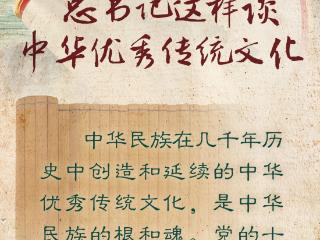 总书记这样谈
中华优秀传统文化
中华民族在几千年历
史中创造和延续的中华
优秀传统文化，是中华
民族的根和魂。党的十